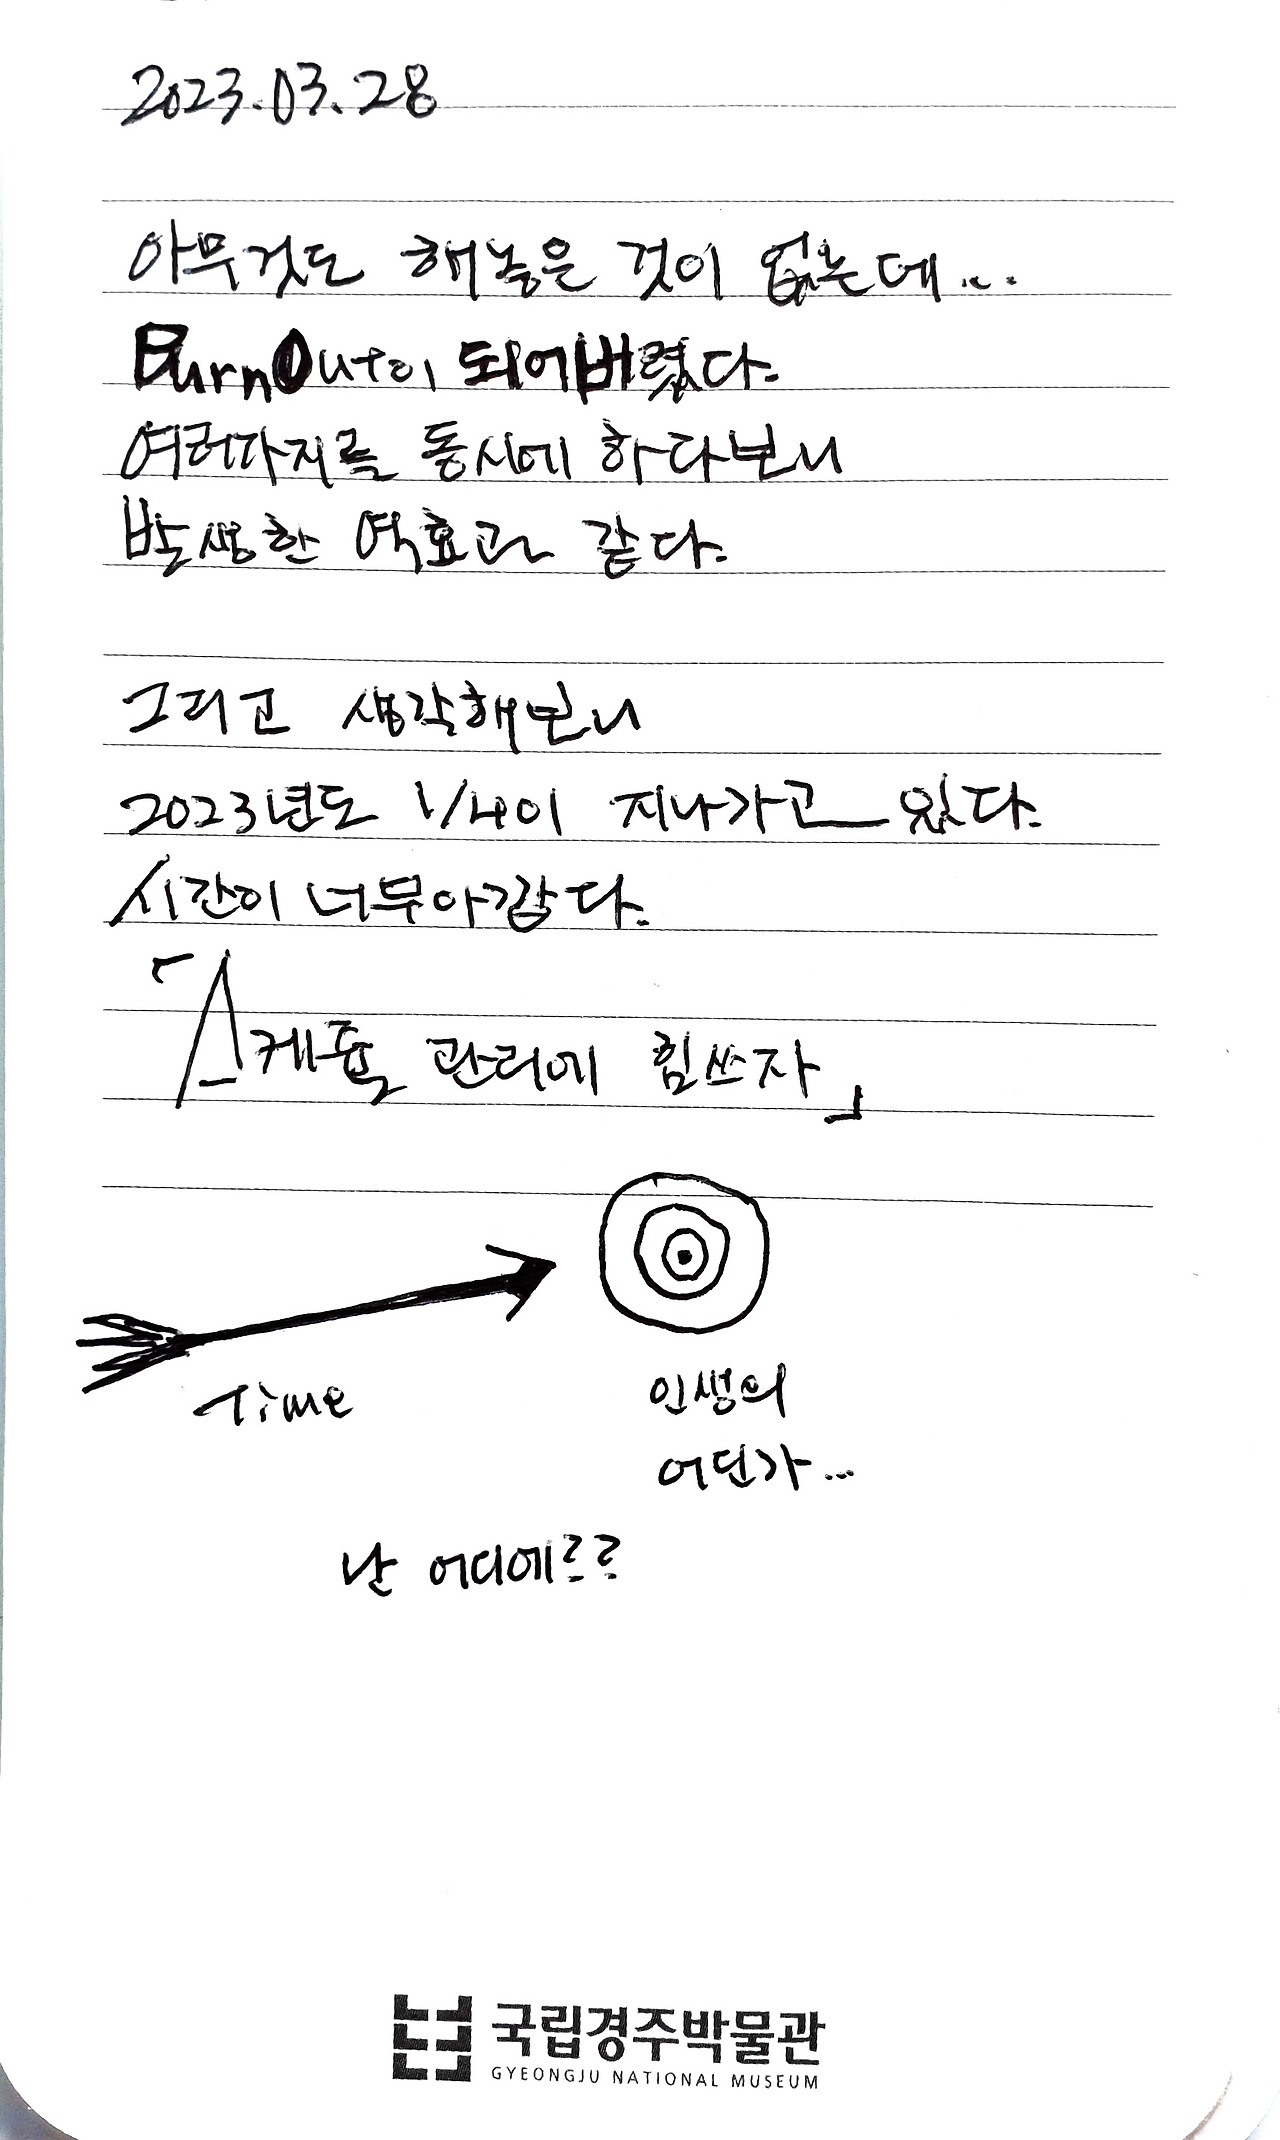 2023.03.28
아무것도 해놓은 것이 없는데...
BurnOut이 되어버렸다.
여러가지를 동시에 하다보니
발생한 역효과 같다.
그리고 생각해보니
2023년도 1/4이 지나가고 있다.
시간이 너무아깝다.
「스케줄 관리에 힘쓰자」
Time
인생의
어딘가...
난 어디에??
국립경주박물관
GYEONGJU NATIONAL MUSEUM